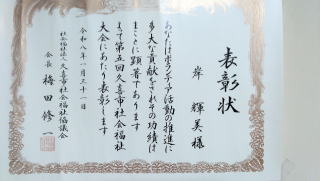 表彰状
岸 輝美 様
あなたはボランティア活動の推進に
多大な貢献をされその功績は
まことに顕著であります
よって第五回久喜市社会福祉
大会にあたり表彰します
令和八年一月三十一日
社会福祉法人久喜市社会福祉協議会
会長 梅田修一